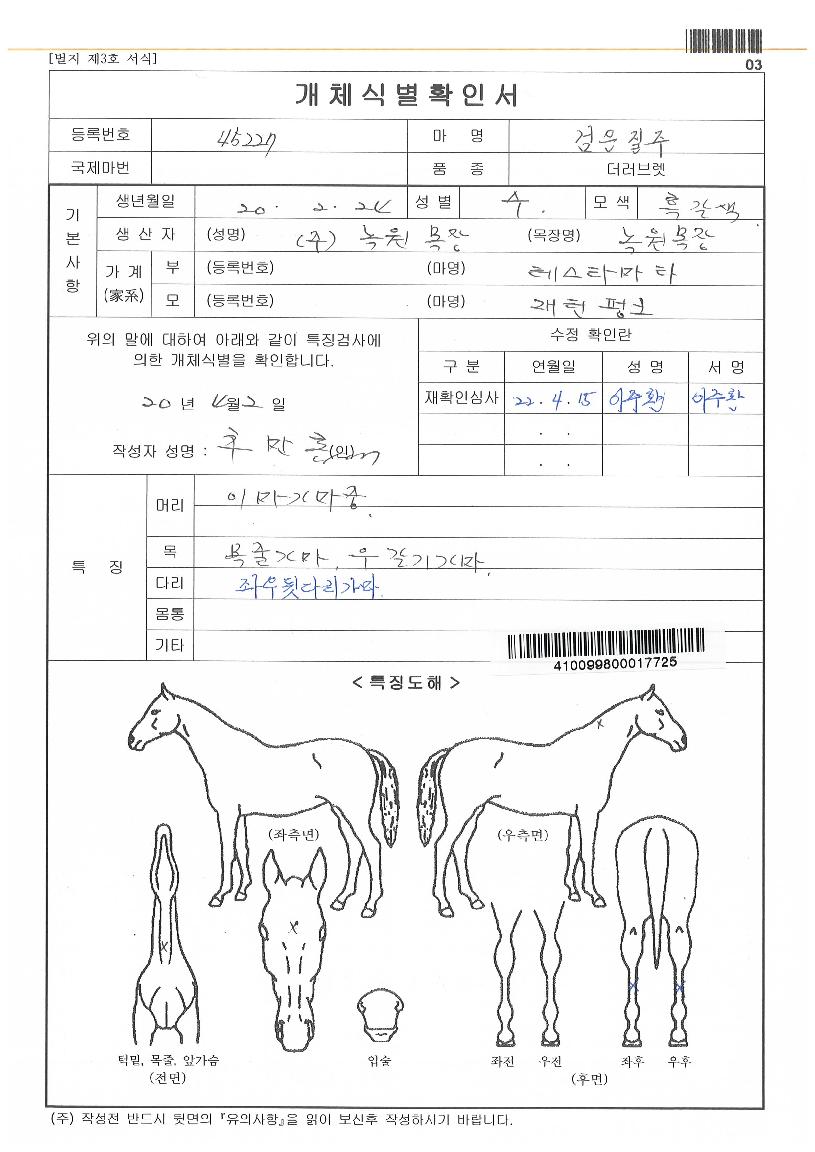 [별지 제3호 서식]
03
개체식별확인서
등록번호 45227 마 명 검은질주
국제마번 품 종 더러브렛
기본사항
생년월일 20. 2. 24 성 별 수. 모 색 흑갈색
생 산 자 (성명) (주) 녹원목장 (목장명) 녹원목장
가 계 (家系)
부 (등록번호) (마명) 테스타마타
모 (등록번호) (마명)
위의 말에 대하여 아래와 같이 특징검사에
의한 개체식별을 확인합니다.
20 년 4월 2 일
작성자 성명 : (인)
수정 확인란
구 분 연월일 성 명 서 명
재확인심사 22. 4. 15 이주환 이주환
. .
. .
특 징
머리 이마가마중.
목 목줄가마, 우갈기가마.
다리 좌우뒷다리가마.
몸통
기타
410099800017725
< 특징도해 >
(좌측면) (우측면)
턱밑, 목줄, 앞가슴 입술 좌전 우전 좌후 우후
(전면) (후면)
(주) 작성전 반드시 뒷면의 『유의사항』을 읽어 보신후 작성하시기 바랍니다.